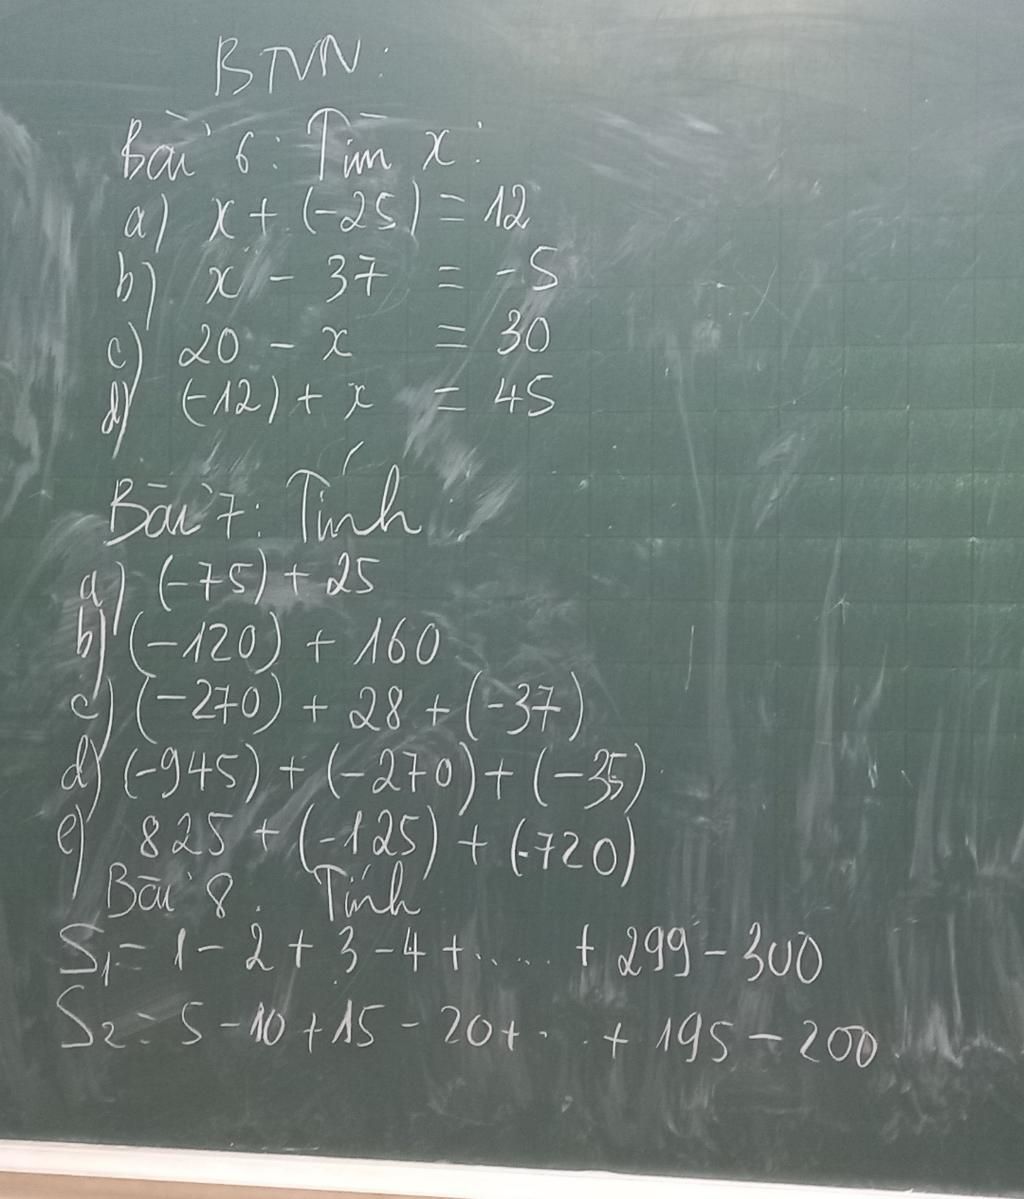 BTVN:
Bài 6: Tìm x:
a) x + (-25) = 12
b) x - 37 = -5
c) 20 - x = 30
d) (-12) + x = 45
Bài 7: Tính
a) (-75) + 25
b) (-120) + 160
c) (-270) + 28 + (-37)
d) (-945) + (-270) + (-35)
e) 825 + (-125) + (-720)
Bài 8. Tính
S₁ = 1 - 2 + 3 - 4 + ...... + 299 - 300
S₂ = 5 - 10 + 15 - 20 + ... + 195 - 200